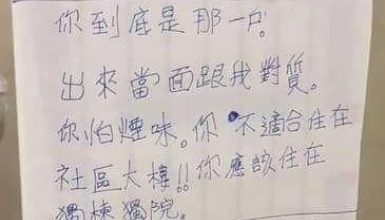 你到底是那一戶。
出來當面跟我對質。
你怕煙味。你不適合住在
社區大樓!!你應該住在
獨棟獨院。